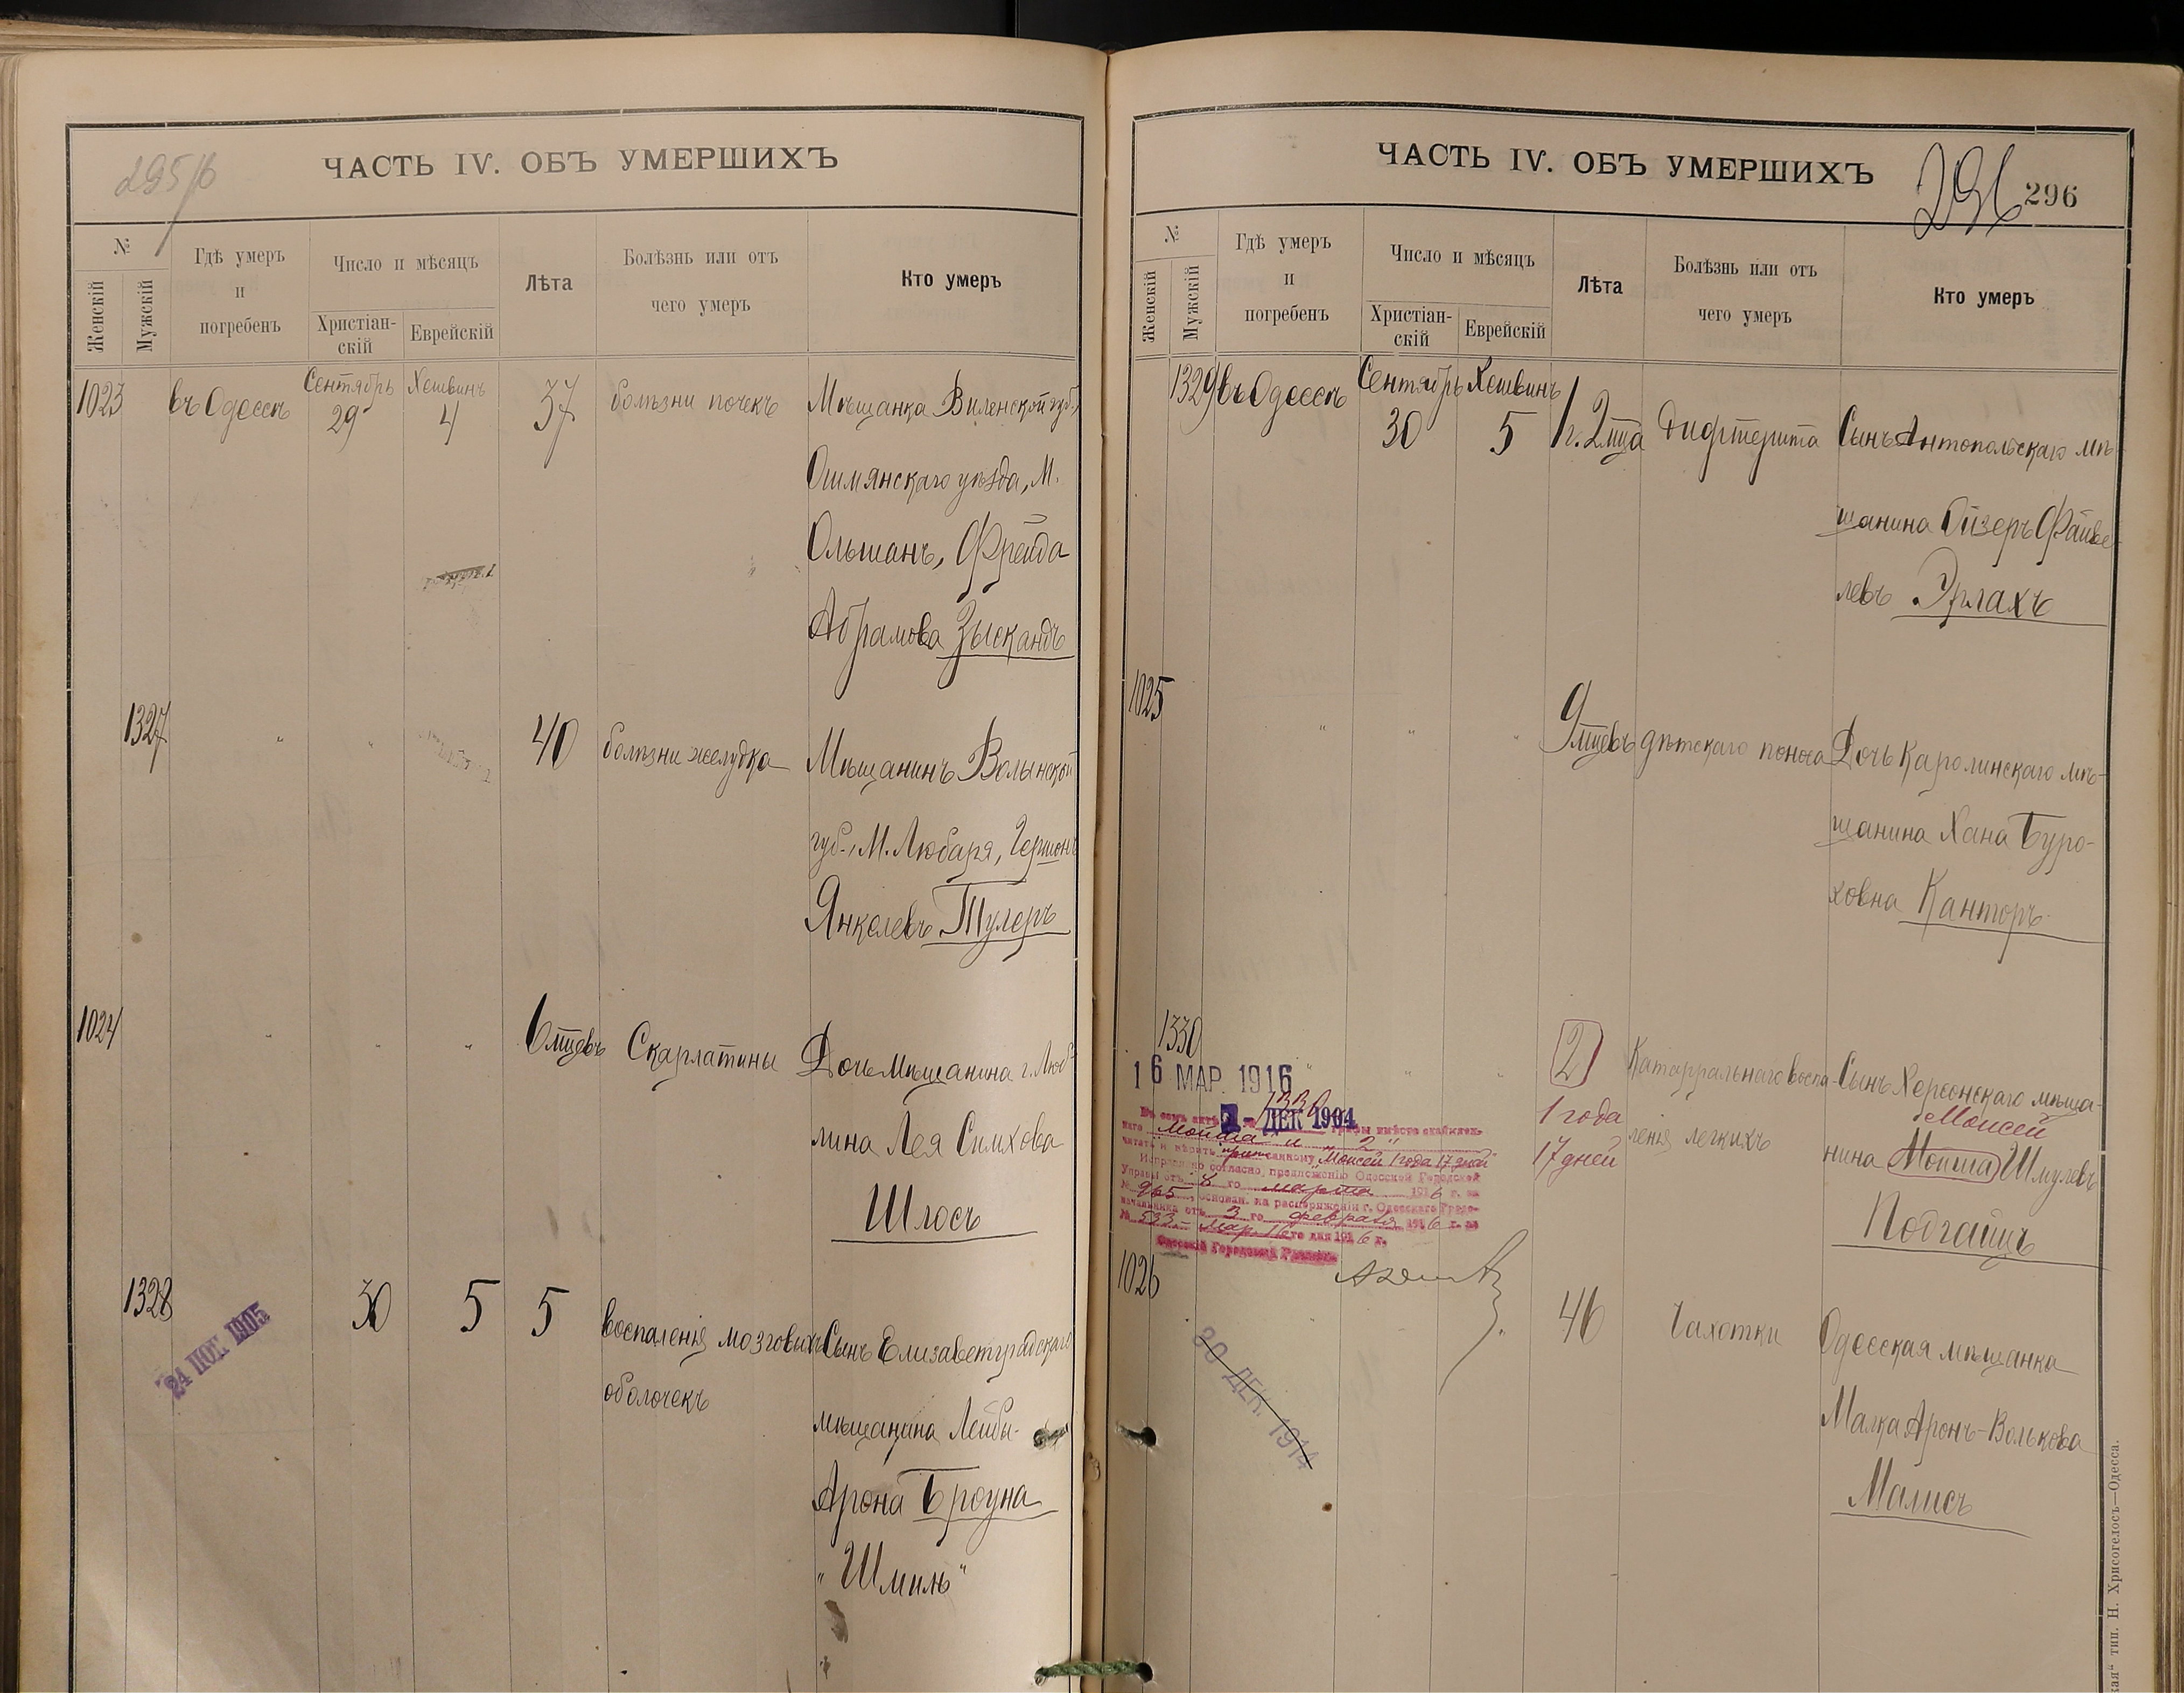 295/б
ЧАСТЬ IV. ОБЪ УМЕРШИХЪ
№
Женскій
Мужскій
Гдѣ умеръ
и
погребенъ
Число и мѣсяцъ
Христіан-
скій
Еврейскій
Лѣта
Болѣзнь или отъ
чего умеръ
Кто умеръ
1023 въ Одессѣ Сентябрь 29 Хешвинъ 4 37 болѣзни почекъ Мѣщанка Виленской губ.,
Ошмянскаго уѣзда, М.
Ольшанъ, Фрейда
Абрамова Зыскандъ
1327 " " 40 болѣзни желудка Мѣщанинъ Волынской
губ., М. Любаря, Гершонъ
Янкелевъ Тулеръ
1024 " " " 6 мцевъ Скарлатины Дочь мѣщанина г. Люб-
лина Лея Симхова
Шлосъ
1328 30 5 5 воспаленія мозговыхъ Сынъ Елизаветградскаго
оболочекъ
мѣщанина Лейбы-
Арона Броуна
"Шмиль"
24 1905
ЧАСТЬ IV. ОБЪ УМЕРШИХЪ
296
№
Женскій
Мужскій
Гдѣ умеръ
и
погребенъ
Число и мѣсяцъ
Христіан-
скій
Еврейскій
Лѣта
Болѣзнь или отъ
чего умеръ
Кто умеръ
1329 въ Одессѣ Сентябрь 30 Хешвинъ 5 1 г. 2 мца дифтерита Сынъ Антопольскаго мѣ-
щанина Ойзеръ Файве-
левъ Эрлахъ
1025 " " " 9 мцевъ дѣтскаго поноса Дочь Каролинскаго мѣ-
щанина Хана Буро-
ховна Канторъ
1330 " " " 2 Катарральнаго воспа- Сынъ Херсонскаго мѣща-
1 года
17 дней
ленія легкихъ
Моисей
нина Мойша Шмулевъ
Подгаицъ
16 МАР. 1916
2 - ДЕК 1904
Въ семъ актѣ 1330 графы вмѣсто
"Мойша" и "2"
читать и вѣрить приписанному "Моисей 1 года 17 дней"
Исправлено согласно, предложенію Одесской Городской
Управы отъ 8 го марта 1916 г. за
№ 965, основан. на распоряженіи г. Одесскаго Градо-
начальника отъ 3 го февраля 1916 г. за
№ 533 - Мар. 16 го дня 1916 г.
Одесскій Городской Раввинъ
1026 " 46 Чахотки Одесская мѣщанка
Малка Аронъ-Волькова
Малисъ
30 ДЕК. 1914
тип. Н. Хрисогелосъ—Одесса.